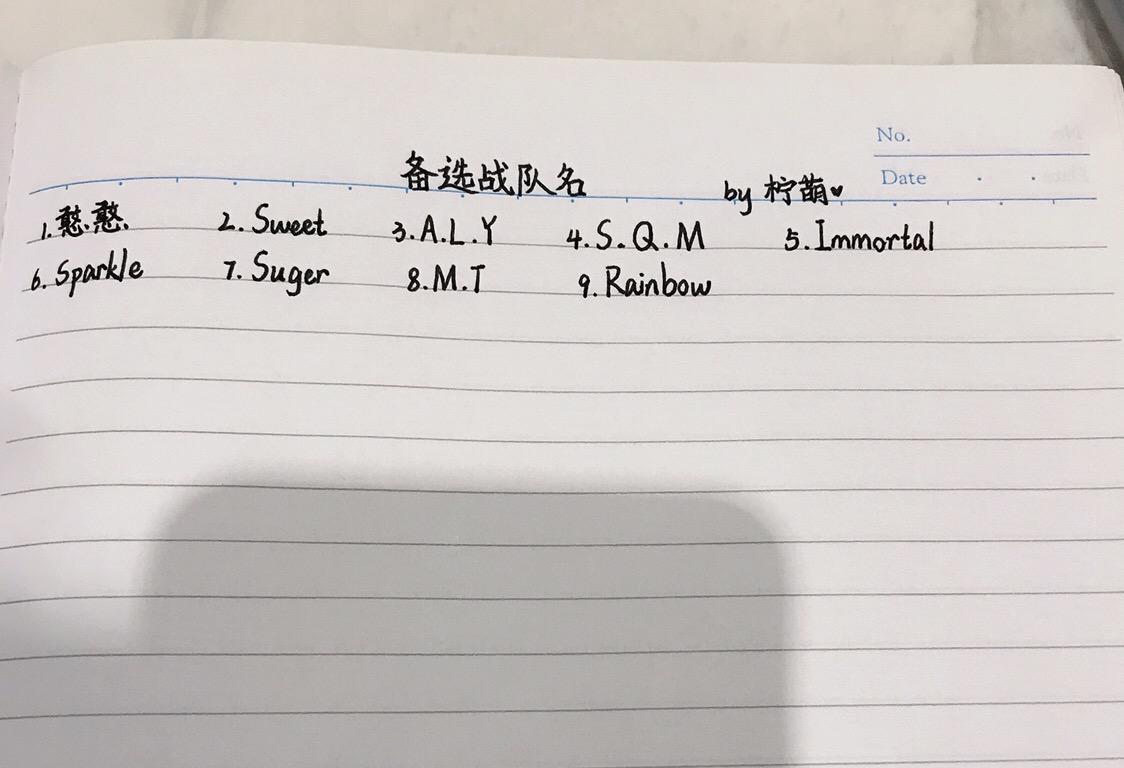 No.
备选战队名 by 柠萌♥ Date . .
1.憨憨. 2.Sweet 3.A.L.Y 4.S.Q.M 5.Immortal
6.Sparkle 7.Suger 8.M.T 9.Rainbow